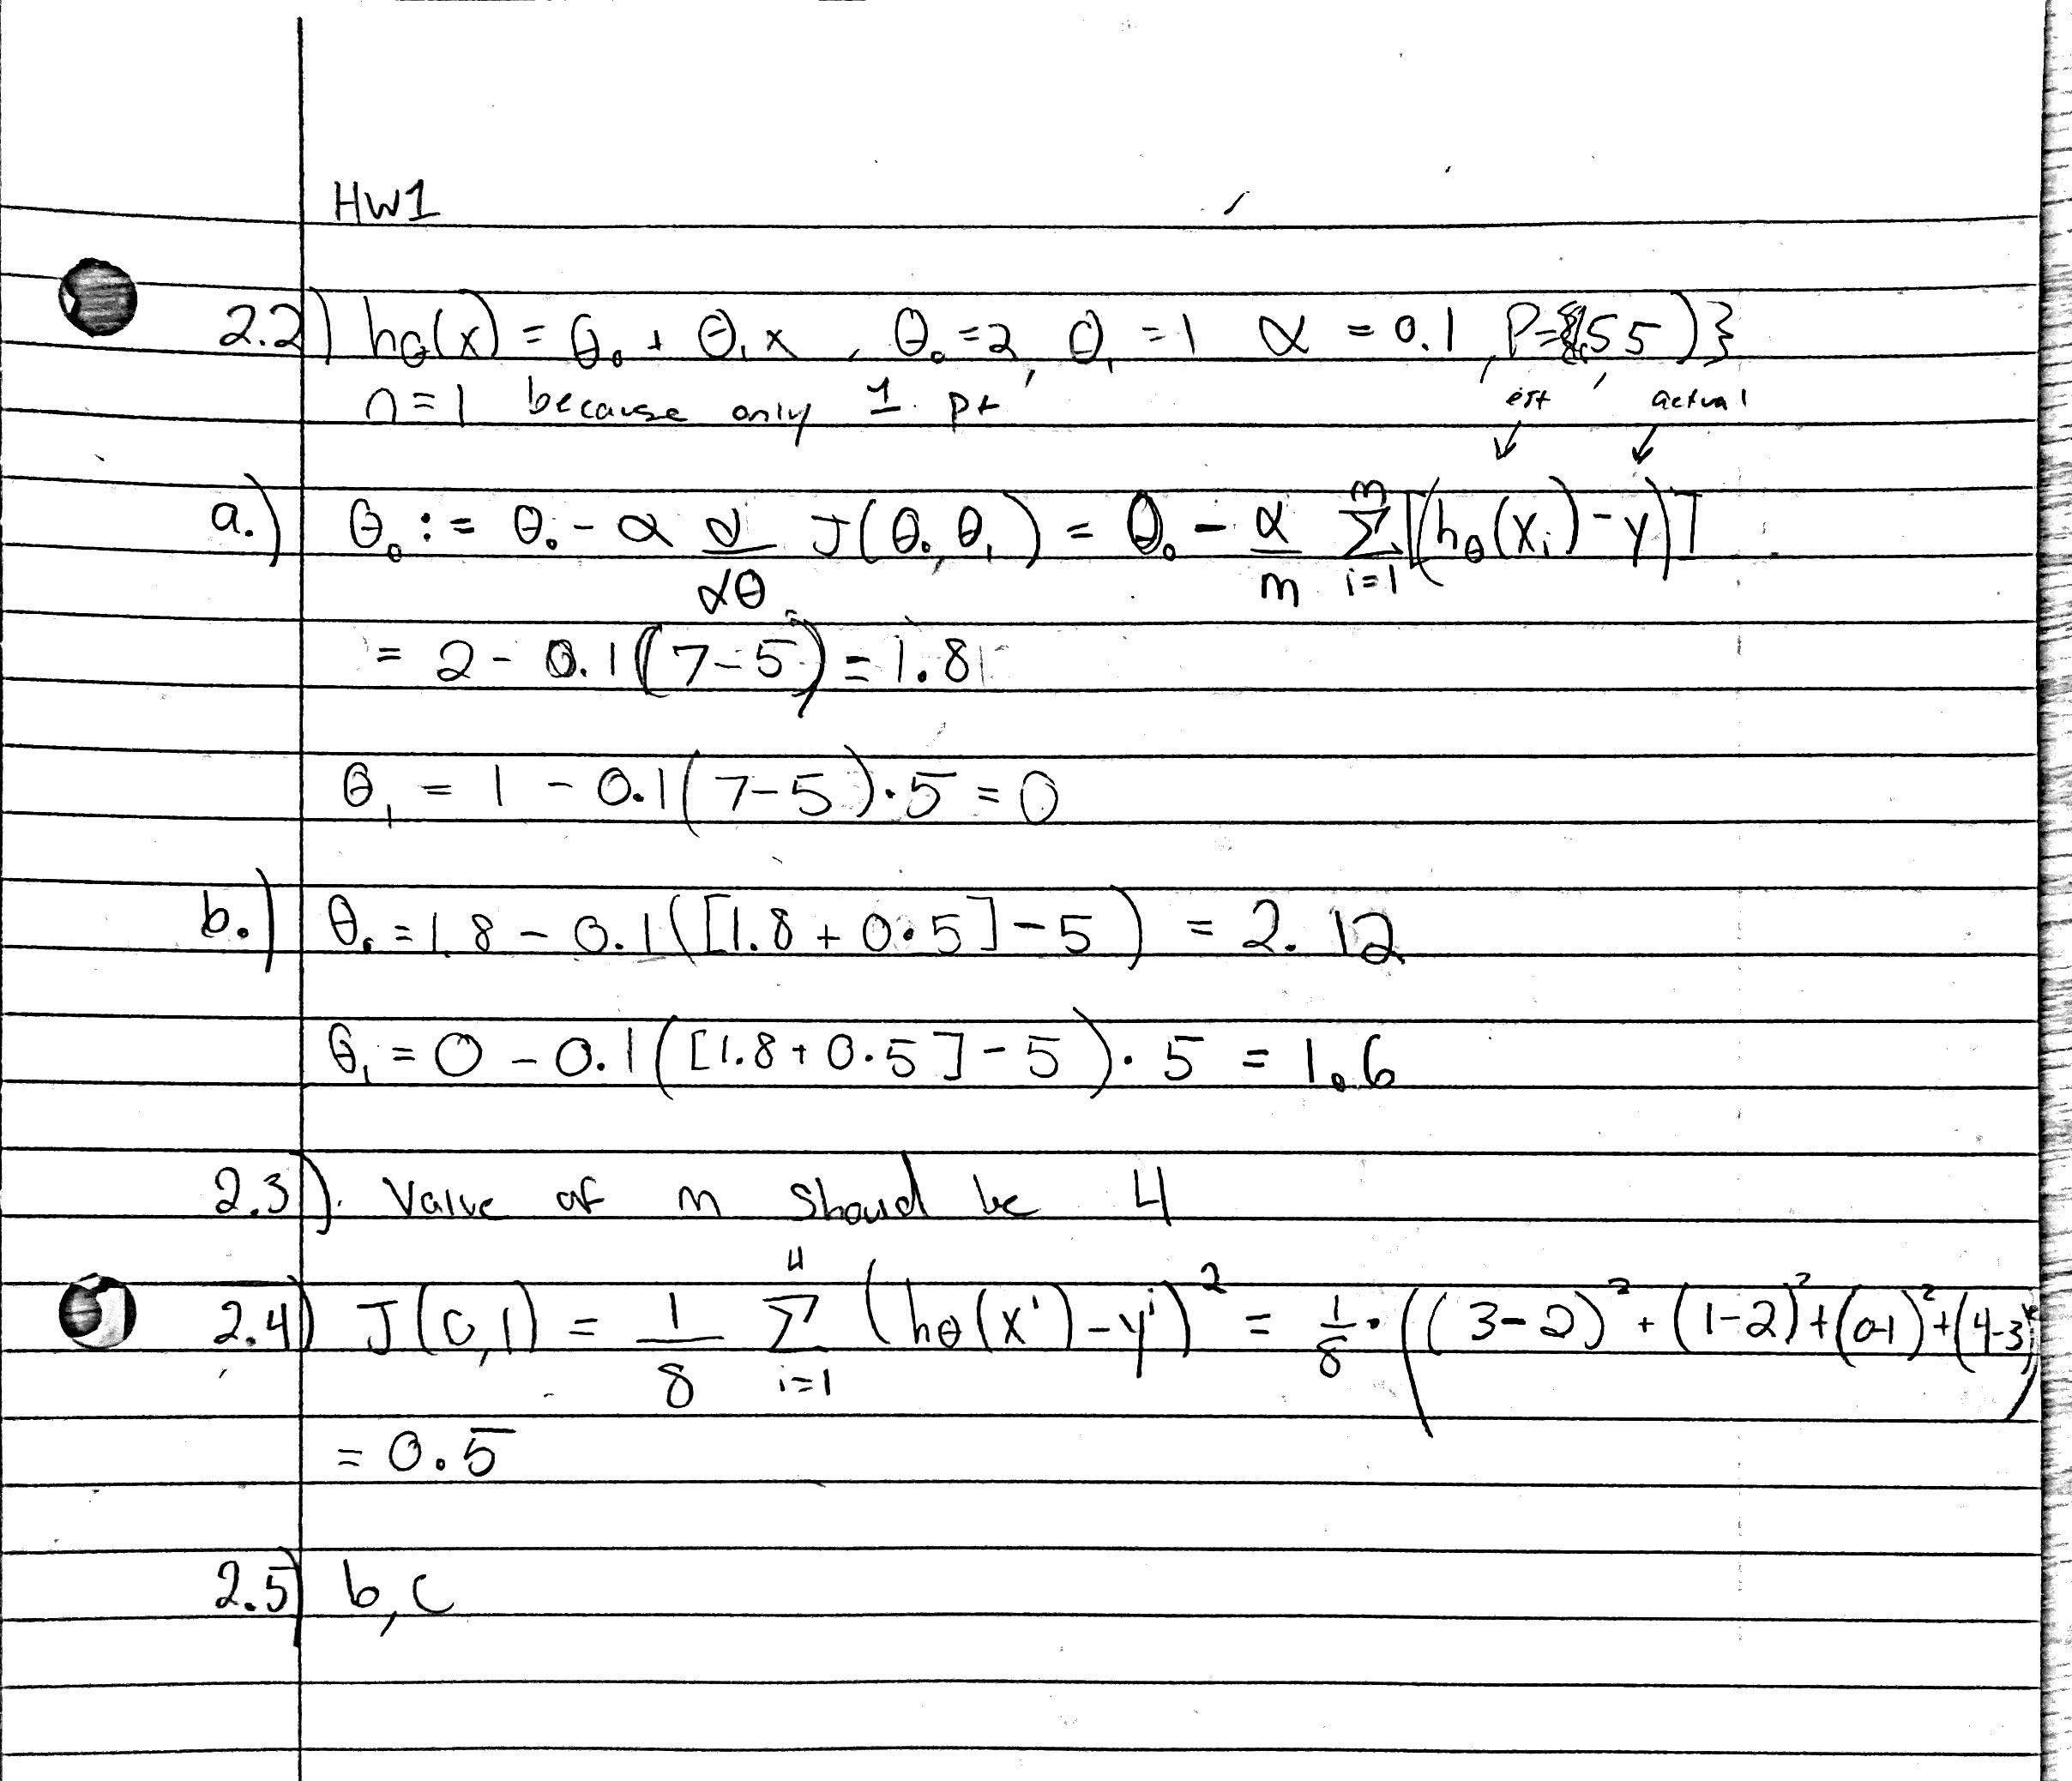 HW1
2.2) hθ(x) = θ₀ + θ₁x , θ₀ = 2, θ₁ = 1 α = 0.1, P={(5,5)}
n = 1 because only 1 pt
est actual
a.) θ₀ := θ₀ - α d/dθ₀ J(θ₀,θ₁) = θ₀ - α/m Σᵢ₌₁ᵐ [(hθ(xᵢ) - y)]
= 2 - 0.1(7-5) = 1.8
θ₁ = 1 - 0.1(7-5)·5 = 0
b.) θ₀ = 1.8 - 0.1([1.8 + 0·5] - 5) = 2.12
θ₁ = 0 - 0.1([1.8 + 0·5] - 5)·5 = 1.6
2.3). Value of m should be 4
2.4) J(0,1) = 1/8 Σᵢ₌₁⁴ (hθ(xⁱ) - yⁱ)² = 1/8·((3-2)² + (1-2)² + (0-1)² + (4-3)²)
= 0.5
2.5) b,c